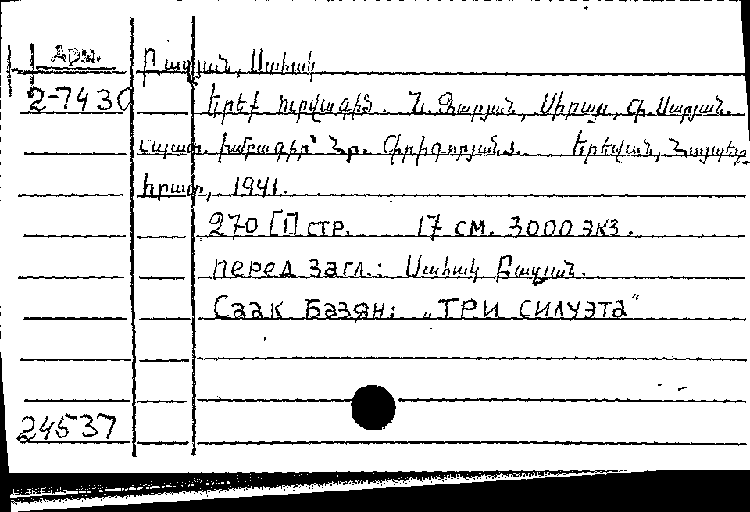 Арм. Բազյան, Սահակ
2-7430 Երեք ուրվագիծ. Ն. Զարյան, Սիրաս, Գ. Սարյան.
պատ. խմբագիր՝ Հր. Գրիգորյան. Երեվան, Հայպետ
հրատ, 1941.
270 [1] стр. 17 см. 3000 экз.
перед загл.: Սահակ Բազյան.
Саак Базян: „ТРИ СИЛУЭТА"
24537